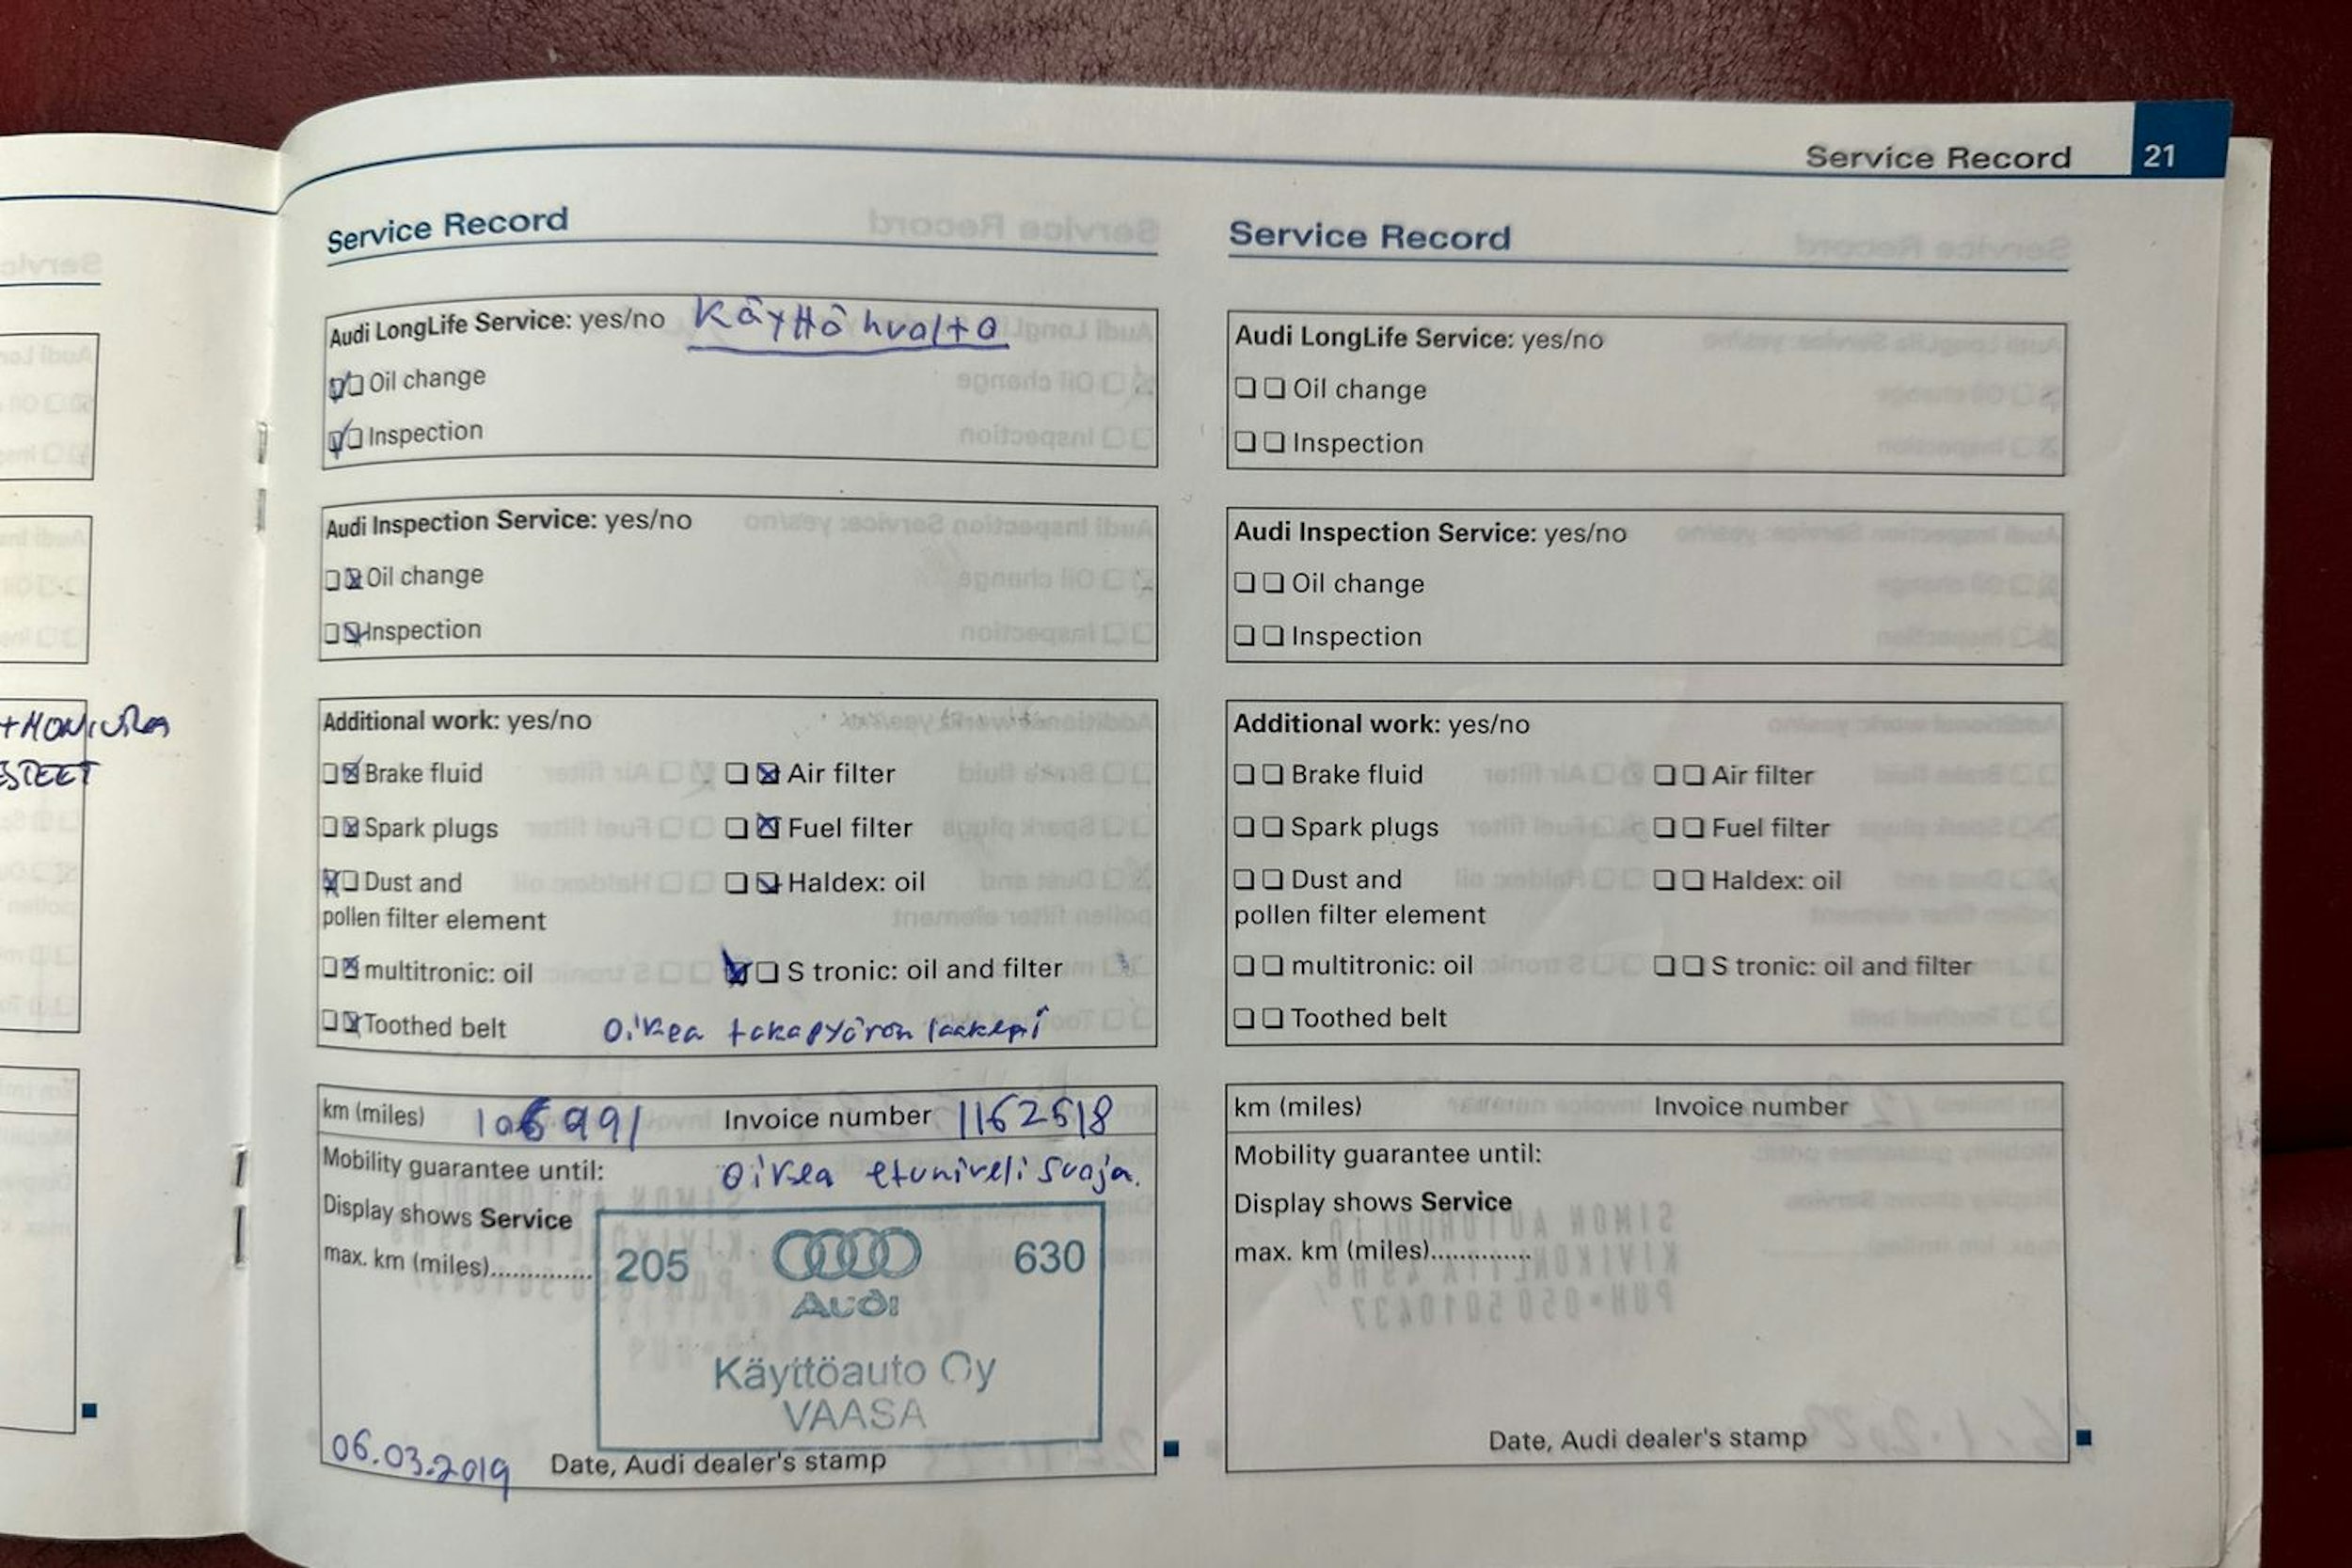 Service Record 21
+MONIURA
ESTEET
Service Record
Audi LongLife Service: yes/no Käyttöhvolto
Oil change
Inspection
Audi Inspection Service: yes/no
Oil change
Inspection
Additional work: yes/no
Brake fluid Air filter
Spark plugs Fuel filter
Dust and Haldex: oil
pollen filter element
multitronic: oil S tronic: oil and filter
Toothed belt Oikea takapyörön laakeri
km (miles) 106991 Invoice number 1162518
Mobility guarantee until: Oikea etuniveli suoja.
Display shows Service
max. km (miles)..............
205 630
Audi
Käyttöauto Oy
VAASA
06.03.2019 Date, Audi dealer's stamp
Service Record
Audi LongLife Service: yes/no
Oil change
Inspection
Audi Inspection Service: yes/no
Oil change
Inspection
Additional work: yes/no
Brake fluid Air filter
Spark plugs Fuel filter
Dust and Haldex: oil
pollen filter element
multitronic: oil S tronic: oil and filter
Toothed belt
km (miles) Invoice number
Mobility guarantee until:
Display shows Service
max. km (miles)..............
Date, Audi dealer's stamp